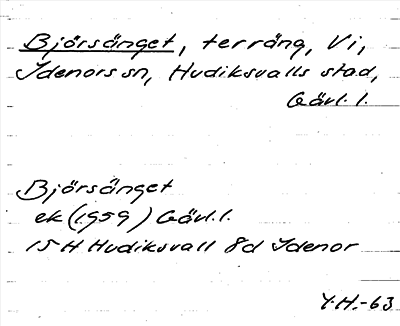 Björsänget, terräng, Vi,
Idenors sn, Hudiksvalls stad,
Gävl. l.
Björsänget
ek (1959) Gävl. l.
15 H Hudiksvall 8d Idenor
Y.H.-63